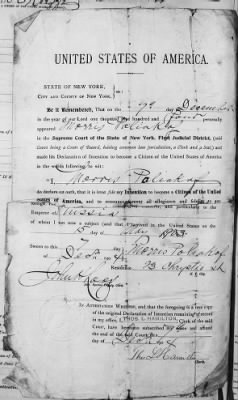 UNITED STATES OF AMERICA.
STATE OF NEW YORK,
CITY AND COUNTY OF NEW YORK,
Be it Remembered, That on the 7th December
in the year of our Lord one thousand nine hundred and Four personally
appeared Morris Poliakof
in the Supreme Court of the State of New York, First Judicial District, (said
Court being a Court of Record, having common law jurisdiction, a Clerk and a Seal) and
made his Declaration of Intention to become a Citizen of the United States of America
in the words following, viz:
I, Morris Poliakof
do declare on oath, that it is bona fide my Intention to become a Citizen of the United
States of America, and to renounce forever all allegiance and
Emperor of Russia
of whom I am now a subject (and that I arrived in the United States on the
July 1903
Sworn to this 7
Dec Morris Poliakof
Residence, 23 Chrystie St
IN ATTESTATION WHEREOF, and that the foregoing is a true copy
of the original Declaration of Intention remaining of record
in my office, I, THOS. L. HAMILTON, Clerk of the said
Court, have hereunto subscribed my name and affixed
the seal of the said Court this
day of
Thos L Hamilton
Clerk.